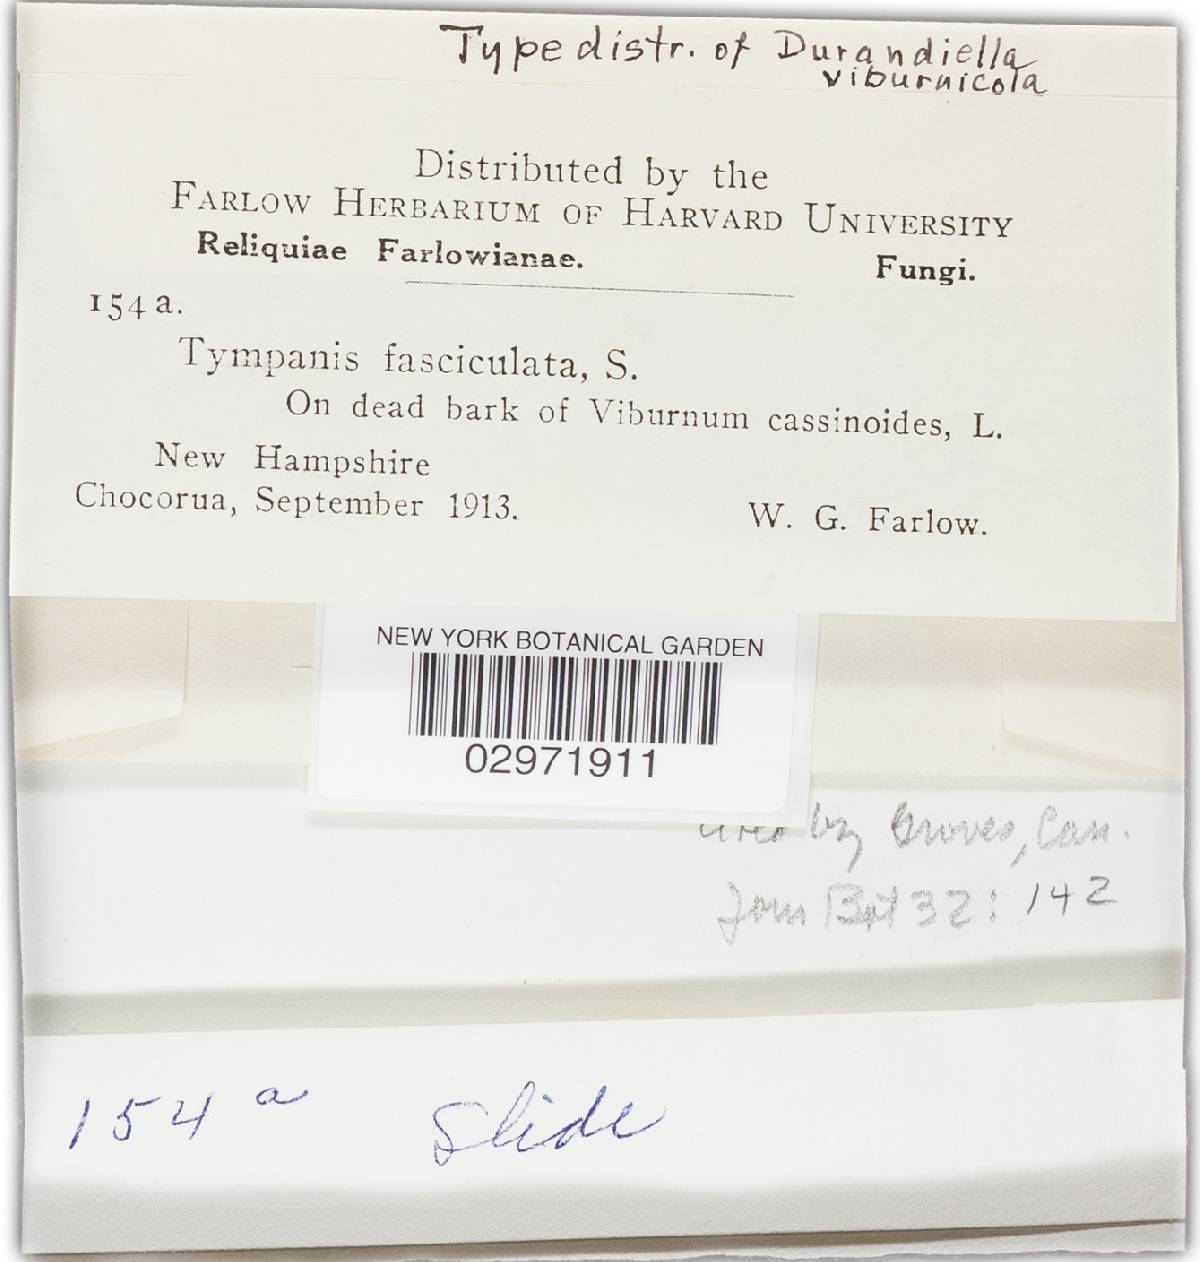 Type distr. of Durandiella
viburnicola
Distributed by the
FARLOW HERBARIUM OF HARVARD UNIVERSITY
Reliquiae Farlowianae. Fungi.
154 a.
Tympanis fasciculata, S.
On dead bark of Viburnum cassinoides, L.
New Hampshire
Chocorua, September 1913. W. G. Farlow.
NEW YORK BOTANICAL GARDEN
02971911
by Groves, Can.
Jour Bot 32: 142
154 a Slide